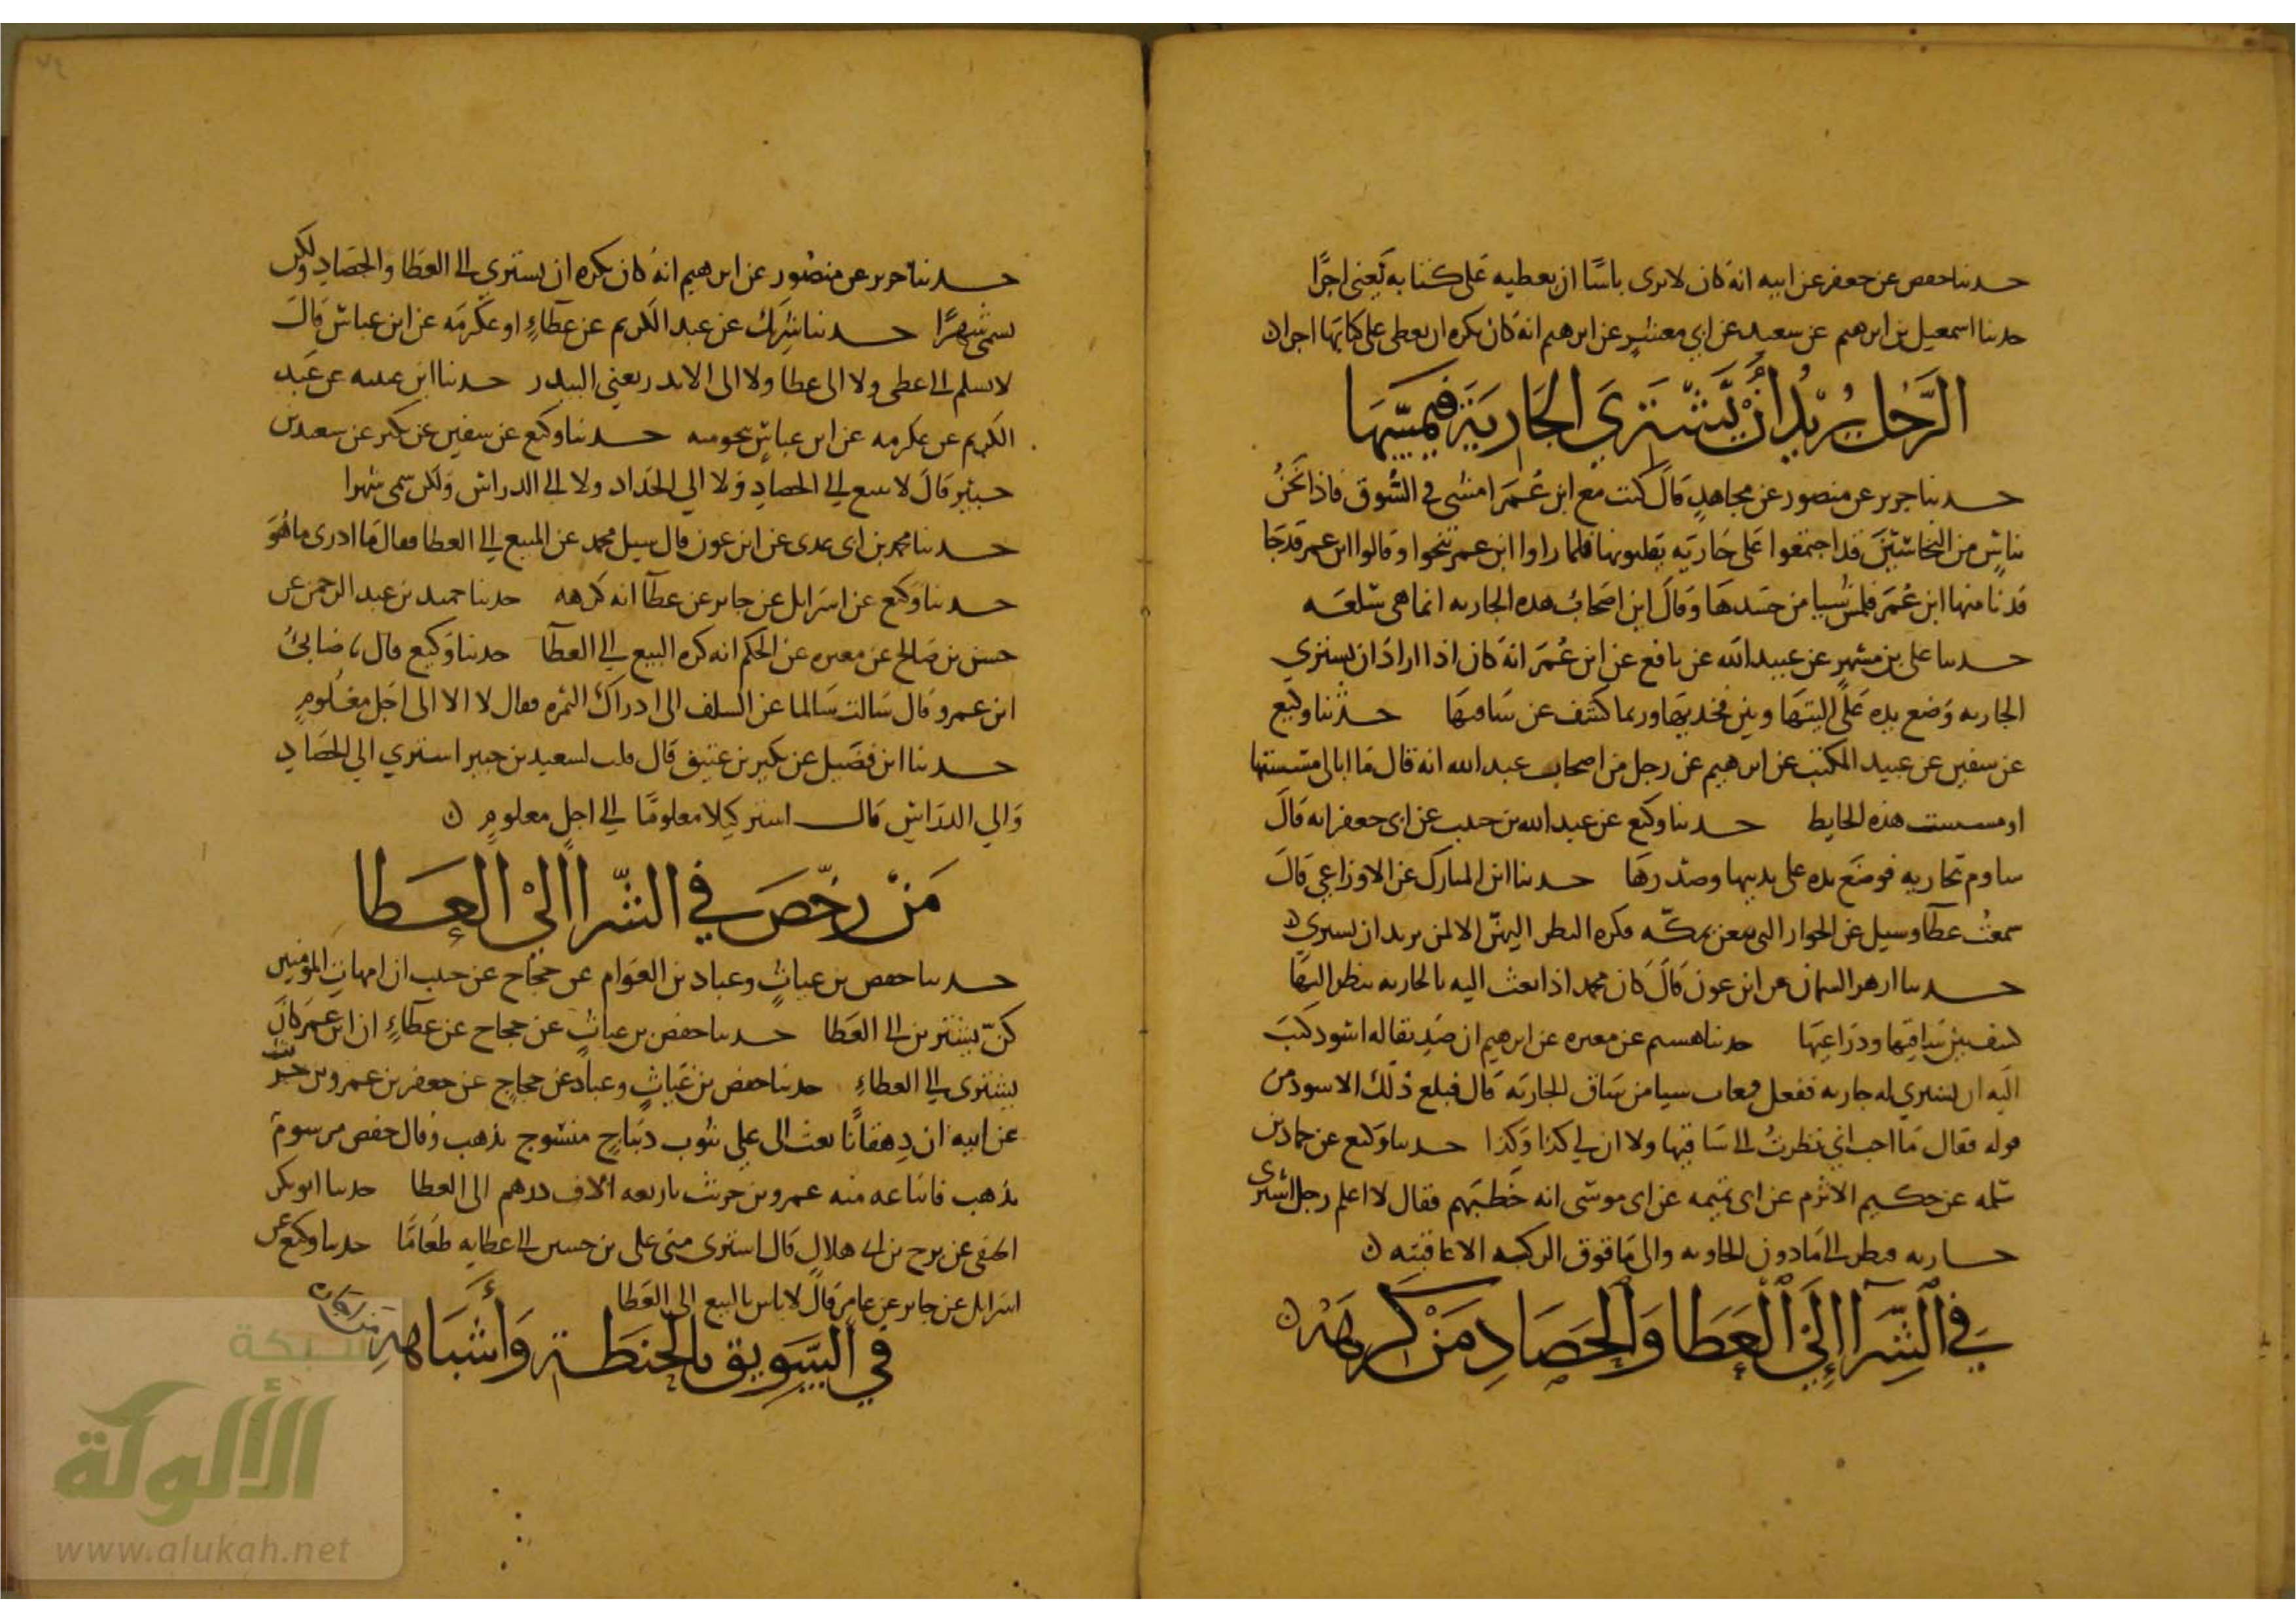 حدثنا حفص عن جعفر عن ابيه انه كان لا يرى باسا ان يعطيه على كتابه يعنى اجرا
حدثنا اسمعيل بن ابرهيم عن سعيد عن ابي معشر عن ابرهيم انه كان يكره ان يعطى على كتابها اجرا ن
الرَّجُل يُرِيْدُ اَنْ يَّشْتَرِيَ الجَارِيَةَ فَيَمَسّهَا
حدثنا جرير عن منصور عن مجاهد قال كنت مع ابن عُمَر امشى في السُّوق فاذا نحنُ
بناس من النخاسين قد اجتمعوا على جارية يقلبونها فلما راوا ابن عمر تنحوا وقالوا ابن عمر قد جا
فدنا منها ابن عُمَر فلمس شيا من جسدها وقال اين اصحابُ هذه الجاريه انما هى سلعه
حدثنا على بن مسهر عن عبيد الله عن نافع عن ابن عُمَر انه كان اذا اراد ان يشتري
الجاريه وضع يده على اليتها وبين فخديها وربما كشف عن ساقيها حدثنا وكيع
عن سفين عن عبيد المكتب عن ابرهيم عن رجل من اصحاب عبد الله انه قال ما ابالى مسستها
او مسست هذه الحايط حدثنا وكيع عن عبد الله بن حبيب عن ابى جعفر انه قال
ساوم بجاريه فوضع يده على ثدييها وصدرها حدثنا ابن المبارك عن الاوزاعي قال
سمعتُ عطا وسيل عن الجوار التى يبعن بمكّه فكره النظر اليهنّ الا لمن يريد ان يشتري ن
حدثنا ازهر السمان عن ابن عون قال كان محمد اذا بعث اليه بالجاريه ينظر اليها
كشف بين ساقيها وذراعيها حدثنا هشيم عن مغيره عن ابرهيم ان صديقا له اسود كتب
اليه ان يشتري له جاريه ففعل فعاب شيا من ساق الجاريه قال فبلغ ذلك الاسود من
قوله فقال ما احب اني نظرتُ الى ساقيها ولا ان لي كذا وكذا حدثنا وكيع عن حماد بن
سلمه عن حكيم الاثرم عن ابى تميمه عن ابى موسى انه خطبهم فقال لا اعلم رجل اشترى
جاريه فنظر الى ما دون الجاويه والى ما فوق الركبه الا عاقبته ن
في الشِّرَآ اِلَى العَطَا وَالحَصَادِ مَنْ كَرِهَهُ ن
حدثنا جرير عن منصور عن ابرهيم انه كان يكره ان يشتري الى العطا والحصاد ولكن
يسمى شهرًا حدثنا شريك عن عبد الكريم عن عطاءٍ او عكرمه عن ابن عباس قال
لا يسلم الى عطى ولا الى عطا ولا الى الاندر يعنى البيدر حدثنا ابن عليه عن عبد
الكريم عن عكرمه عن ابن عباس بنحو منه حدثنا وكيع عن سفين عن بكير عن سعيد بن
جبير قال لا تبع الى الحصاد ولا الي الجداد ولا الى الدراس ولكن سمى شهرا
حدثنا محمد بن ابى عدى عن ابن عون قال سيل محمد عن المبيع الى العطا فقال ما ادرى ما هُوَ
حدثنا وكيع عن اسرايل عن جابر عن عطآ انه كرهه حدثنا حميد بن عبد الرحمن عن
حسن بن صالح عن مغيره عن الحكم انه كره البيع الى العطآ حدثنا وكيع قال
ابن عمرو قال سالت سالما عن السلف الى ادراك الثمره فقال لا الا الى اجل معلومٍ
حدثنا ابن فضيل عن بكير بن عتيق قال قلت لسعيد بن جبير اشتري الى الحصادِ
والي الدراس قال اشتر كيلا معلومًا الى اجلٍ معلومٍ ن
مَنْ رخّصَ فِي الشّرا الىْ العَطا
حدثنا حفص بن غياثٍ وعباد بن العوّام عن حجاج عن حبيب ان امهات المؤمنين
كنّ يشترين الى العطا حدثنا حفص بن غياثٍ عن حجاج عن عطآءٍ ان ابن عمر كان
يشترى الى العطاءِ حدثنا حفص بن غياثٍ وعباد عن حجاج عن جعفر بن عمرو بن حريث
عن ابيه ان دِهقانًا بعث الى على بثوب ديباجٍ منسوج بذهب وقال حفص مرسوم
بذهب فابتاعه منه عمرو بن حريث باربعه الاف درهم الى العطا حدثنا ابو بكر
الحنفى عن نوح بن ابى هلال قال اشترى منى على بن حسين الى عطايه طعامًا حدثنا وكيع عن
اسرايل عن جابر عن عامر قال لا باس بالبيع الى العَطا
في السَّوِيق بالحِنطَة وَأشبَاهِهِ
شبكة
الألوكة
www.alukah.net